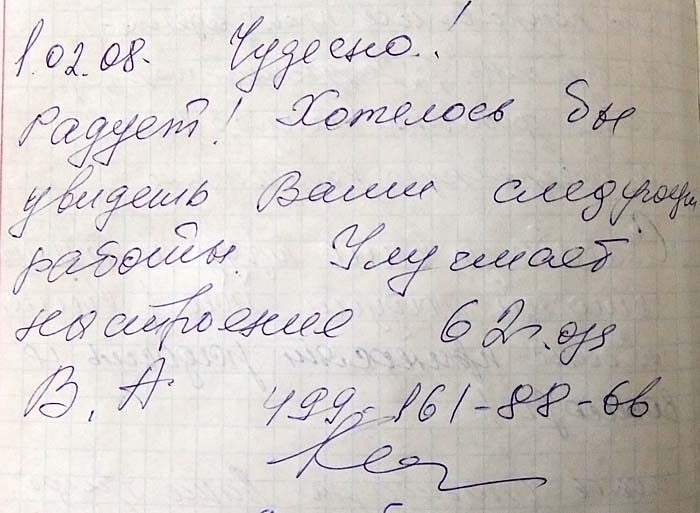 1.02.08. Чудесно..!
Радует! Хотелось бы
увидеть Ваши следующи
работы. Улучшает
настроение 62
В. А 499-161-88-66